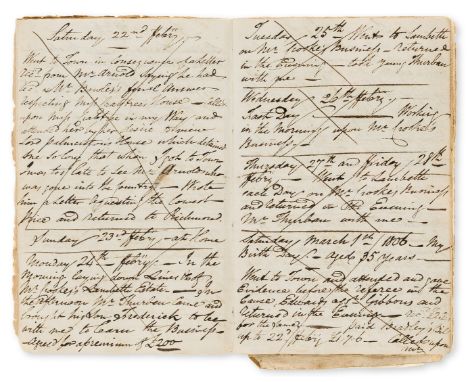 Saturday 22nd Febry
Went to Town in consequence of a letter
rec'd from Mr Arnold saying he had
Mr Bender's final Answer
respecting House
upon my in my Way and
attend
Lord Palmerston's House which detained
me so long that when I got to Town
was too late to see Mr Arnold who
was gone into the Country Wrote
him a letter requesting the lowest
Price and returned to Richmond
Sunday 23rd Febry at Home
Monday 24th Febry In the
Morning laying down Lines that
Lambeth Estate In
the afternoon Mr Thurban came and
brought his Son Frederick to be
with me to learn the Business
agreed for a premium of £200
Tuesday 25th Went to Lambeth
on Mr Business returned
in the Evening took young Thurban
with me
Wednesday 26th Febry
Working
in the Morning upon Mr
Business
Thursday 27th and Friday 28th
Febry Went to Lambeth
each Day on Mr Business
and returned in the Evening
Mr Thurban with me
Saturday March 1st 1806 My
Birth Day aged 35 years
Went to Town and attended and gave
Evidence before the referee in the
Cause Edwards agst Gibbons and
returned in the Evening
for the same paid Bill
up to 22 Febry 21.7.6 upon